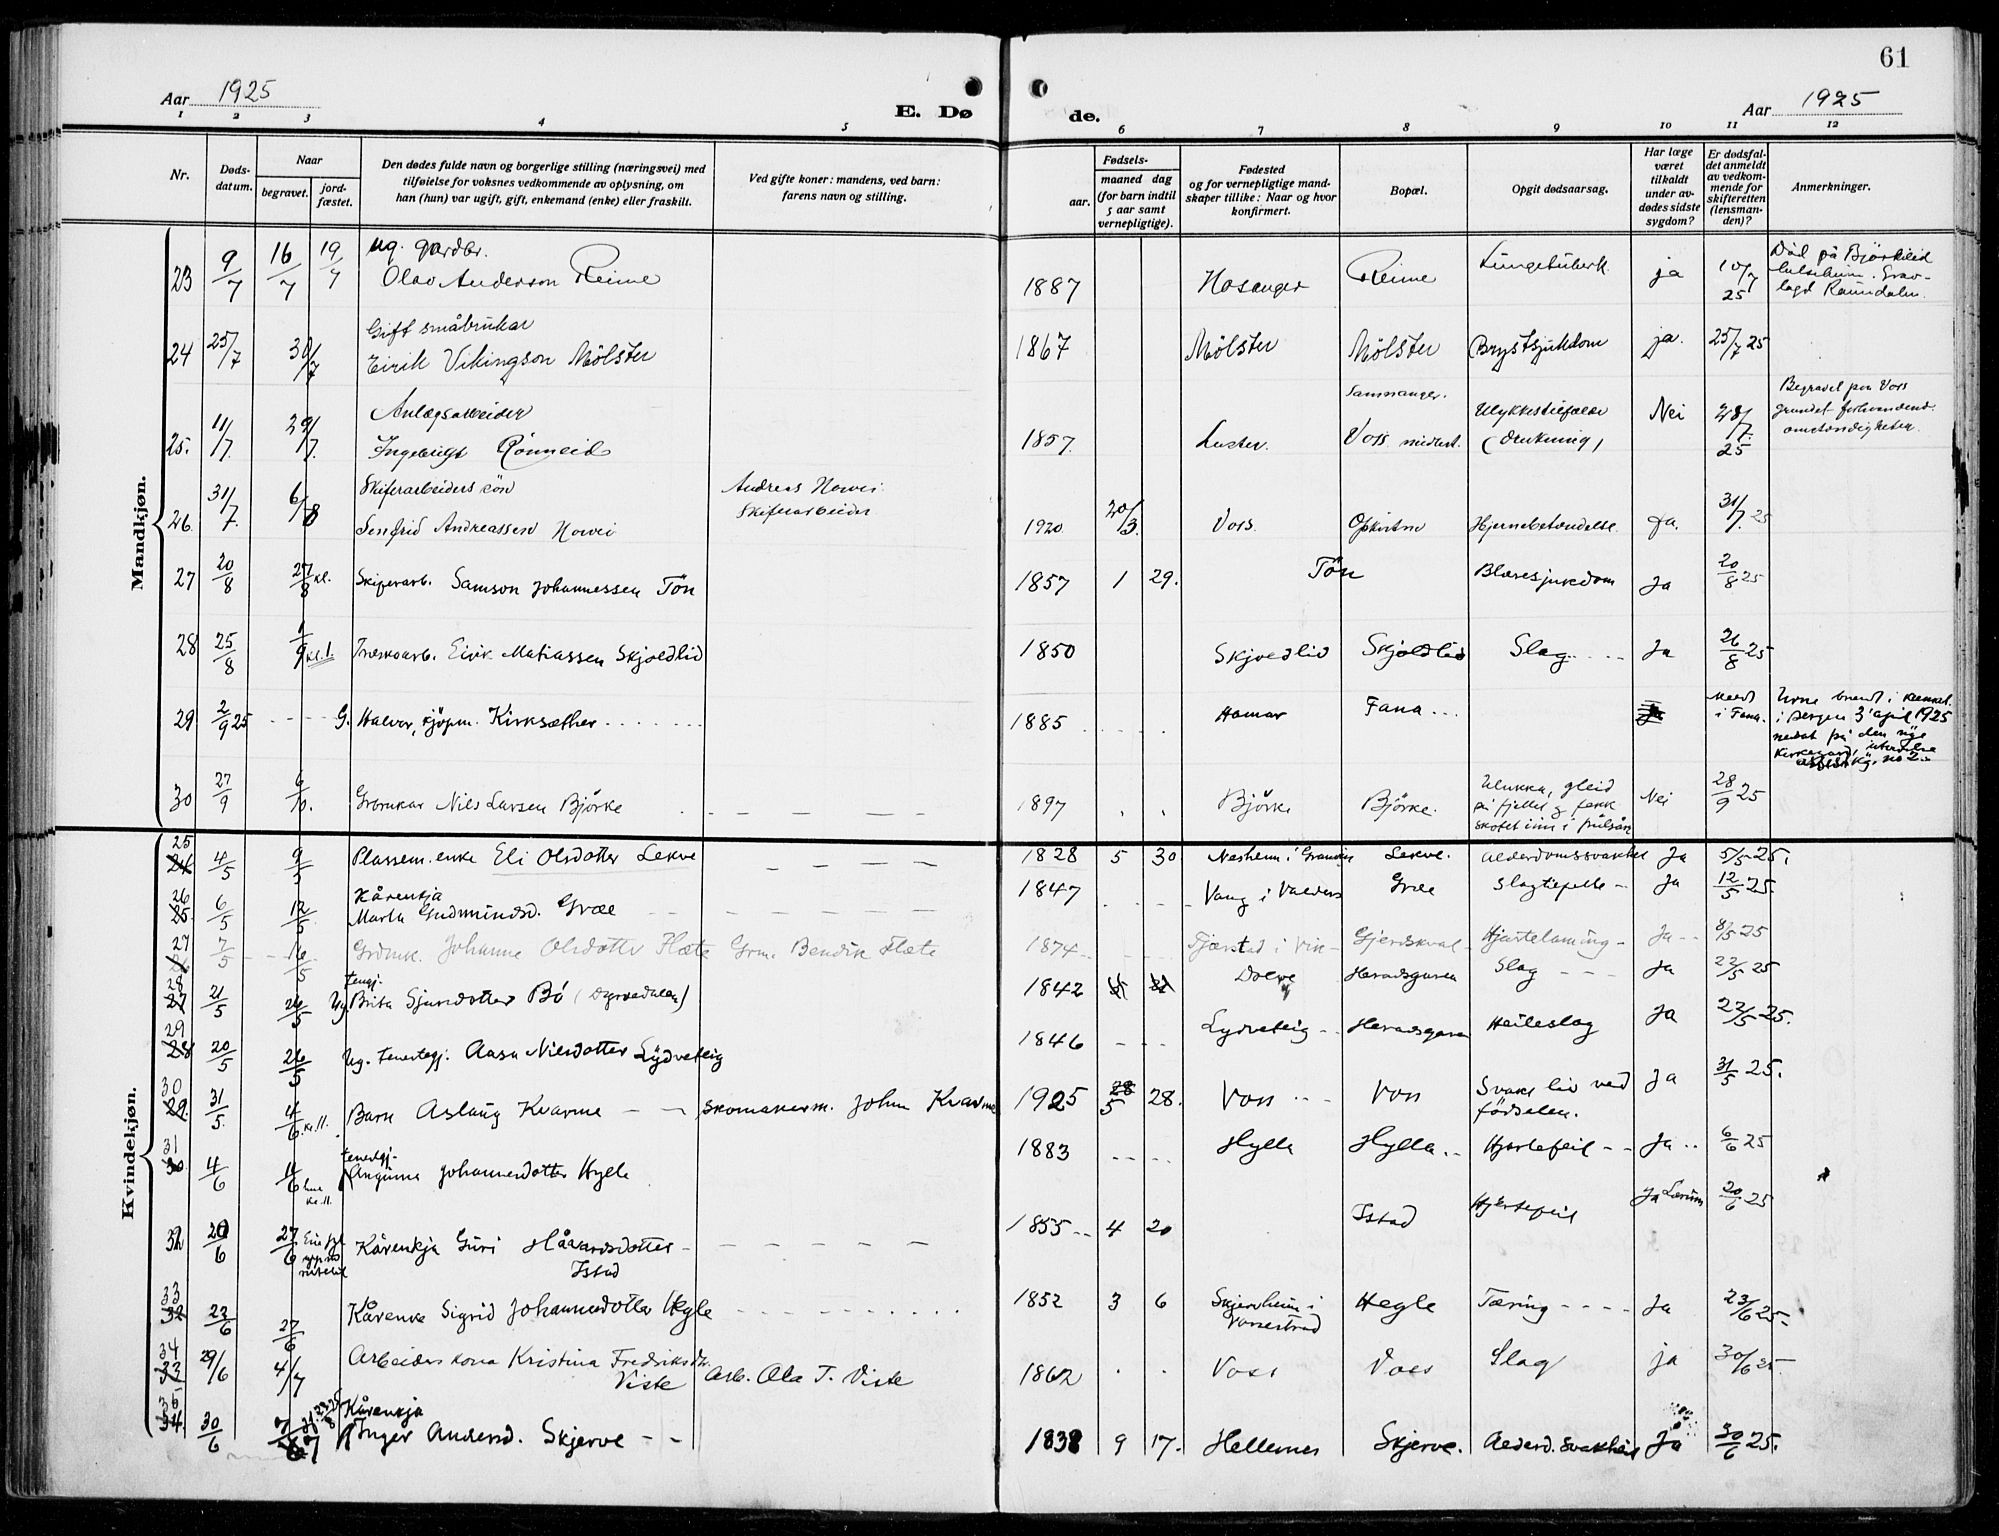 61
Aar 1925
E. Dø
de.
Aar 1925
1 2 3 4 5 6 7 8 9 10 11 12
Nr.
Døds-
datum.
Naar
begravet.
jord-
fæstet.
Den dødes fulde navn og borgerlige stilling (næringsvei) med
tilføielse for voksnes vedkommende av oplysning, om
han (hun) var ugift, gift, enkemand (enke) eller fraskilt.
Ved gifte koner: mandens, ved barn:
farens navn og stilling.
Fødsels-
aar.
maaned dag
(for barn indtil
5 aar samt
vernepligtige).
Fødested
og for vernepligtige mand-
skaper tillike: Naar og hvor
konfirmert.
Bopæl.
Opgit dødsaarsag.
Har læge
været
tilkaldt
under av-
dødes sidste
sygdom?
Er dødsfal-
det anmeldt
av vedkom-
mende for
skifteretten
(lensman-
den)?
Anmerkninger.
Mandkjøn.
ug. gardbr.
23 9/7 16/7 19/7 Olav Anderson Reime 1887 Hosanger Reime Lungetuberk. ja 10/7 25
Död på Björkelid
helseheim. Grav-
lagd Raundalen.
Gift småbrukar
24 25/7 30/7 Eirik Vikingson Mölster 1867 Mölster Mölster Brystsjukdom ja. 25/7 25
Anlægsarbeider
25. 11/7. 29/7. Ingebrigt Rönneid 1857. Luster. Voss midlert. Ulykkestilfælde (drukning) Nei 28/7. 25
Samnanger.
Begravet paa Voss
grundet forhaandenv.
omstændigheter.
Skiferarbeiders sön Andreas Horvei
Skiferarbeider
26. 31/7. 6/8 Andreassen Horvei 1920 20/3. Voss. Hjernebetændelse. Ja. 31/7. 25
27 20/8 27/8 kl. Skiferarb. Samson Johannessen Tön 1857 1 29. Tön Blæresjukdom Ja 20/8 25
28 25/8 1/9 kl. 1. Eirik Matiassen Skjoldlid 1850 Skjoldlid Skjoldlid Slag Ja 26/8 25
29 2/9 25 G. Halvor, kjöpm. Kirksæther 1885 Hamar Fana Meldt
i Fana.
Urne brend i
i Bergen 3 april 1925
nedsat på den nye
30 27/9 6/10. Gbrukar Nils Larsen Björke 1897 Björke Björke. Ulukka, gleid
på fjellet og fekk
skotet inn i pulsår
Nei 28/9 25
Kvindekjøn.
25 24 4/5 9/5 Plassem. enke Eli Olsdotter Lekve 1828 5 30 Næsheim i Granvin Lekve. Alderdomssvakhet Ja 5/5 25.
Kårenkja
26 25. 6/5 12/5. Marta Gudmundsd. Græe 1847 Vang i Valders Græe Slagtilfelle Ja 12/5 25.
27 26 7/5 16/5 Johanne Olsdotter Flæte Grm. Bendik Flæte 1874 i Vik Gjerdskval Hjartelaming Ja 8/5 25
tengj.
28 27 21/5 26/5 Ug. Brita Sjurdotter Bö (Dyrvedalen) 1842 Heradsgaren Slag Ja 22/5 25
29 28 20/5 26/5 Ug. tenestegj. Aasa Nilsdotter Lydvetleig 1846 Lydvetleig Heradsgaren Heileslag Ja 22/5 25.
30 29. 31/5. 4/6 kl. 11. Barn Aslaug Kvarme Skomakerm. John Kvarme 1925 5 28. Voss Voss Svakt liv ved
födselen.
Ja 31/5 25.
tenestgj.
31 30 4/6 4/6 kl. 11. Johannesdotter Hylle 1883 Hylla Hylla Hjartefeil Ja 6/6 25
32 20/6 27/6 Kårenkja Guri Håvardsdotter
Istad
1855 4 20 Istad Hjertefeil Ja Lærum 20/6 25
33 32 23/6 27/6 Kårenke Sigrid Johannesdotter Hegle 1852 3 6 Skjervheim i
Vossestrand
Hegle Tæring Ja 23/6 25.
34 33 29/6 4/7 Arbeidarkona Kristina Fredriksdt.
Viste
Arb. Ola T. Viste 1862 Voss Voss Slag ja 30/6 25
Kårenkja
35 34. 30/6 Inger Andersd. Skjerve 1838 9 17. Hellernes Skjerve. Alderd. svakheit Ja 30/6 25.